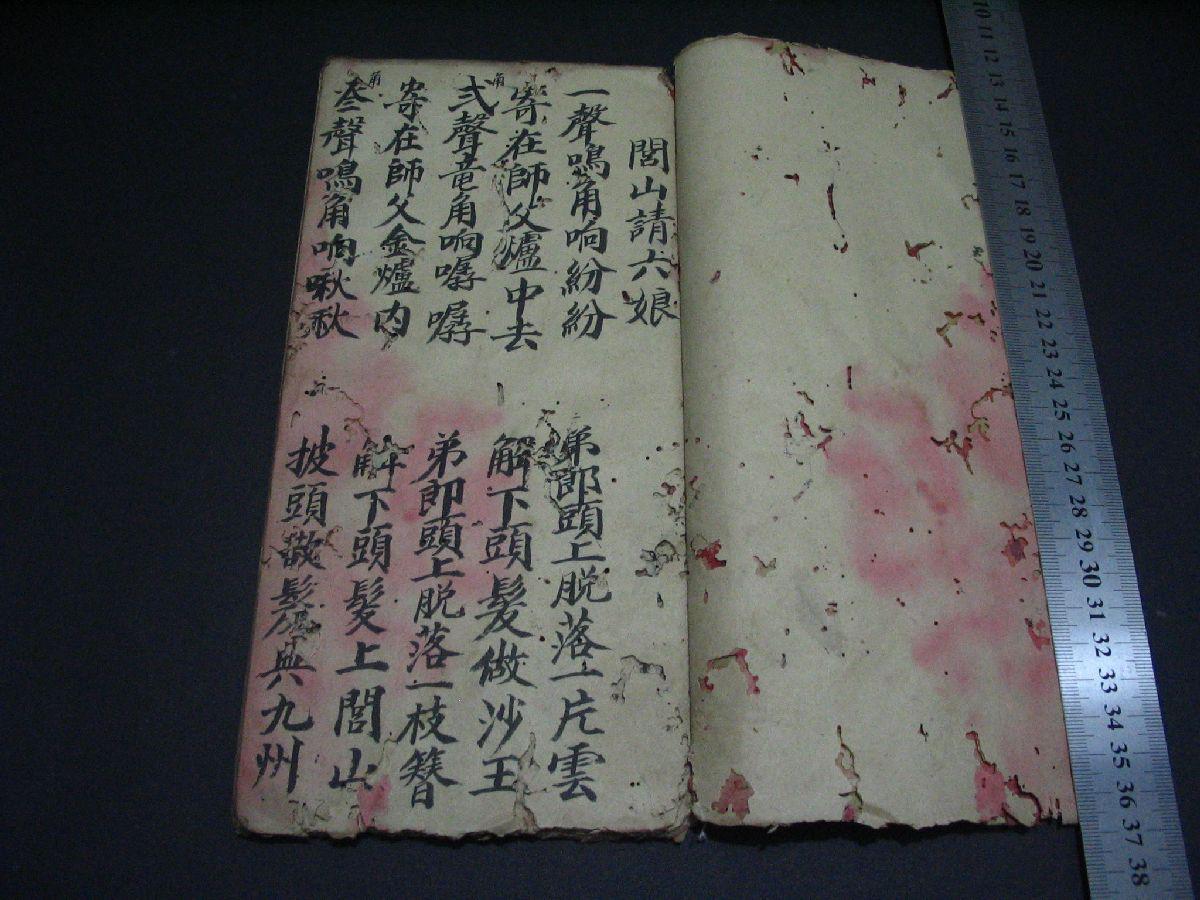 閭山請六娘
一聲鳴角响紛紛 弟郎頭上脱落一片雲
寄在師父爐中去 解下頭髮做沙王
角
弍聲竜角响嘚嘚 弟郎頭上脱落一枝簪
寄在師父金爐内 解下頭髮上閭山
角
叁聲鳴角响啾秋 披頭散髮典九州
10 11 12 13 14 15 16 17 18 19 20 21 22 23 24 25 26 27 28 29 30 31 32 33 34 35 36 37 38